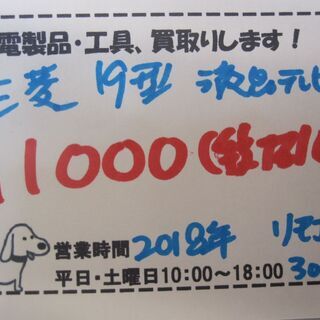 電製品・工具、買取りします！
三菱 19型 液晶テレビ
11000(税別)
営業時間 2018年 リモコ
平日・土曜日10:00～18:00 30